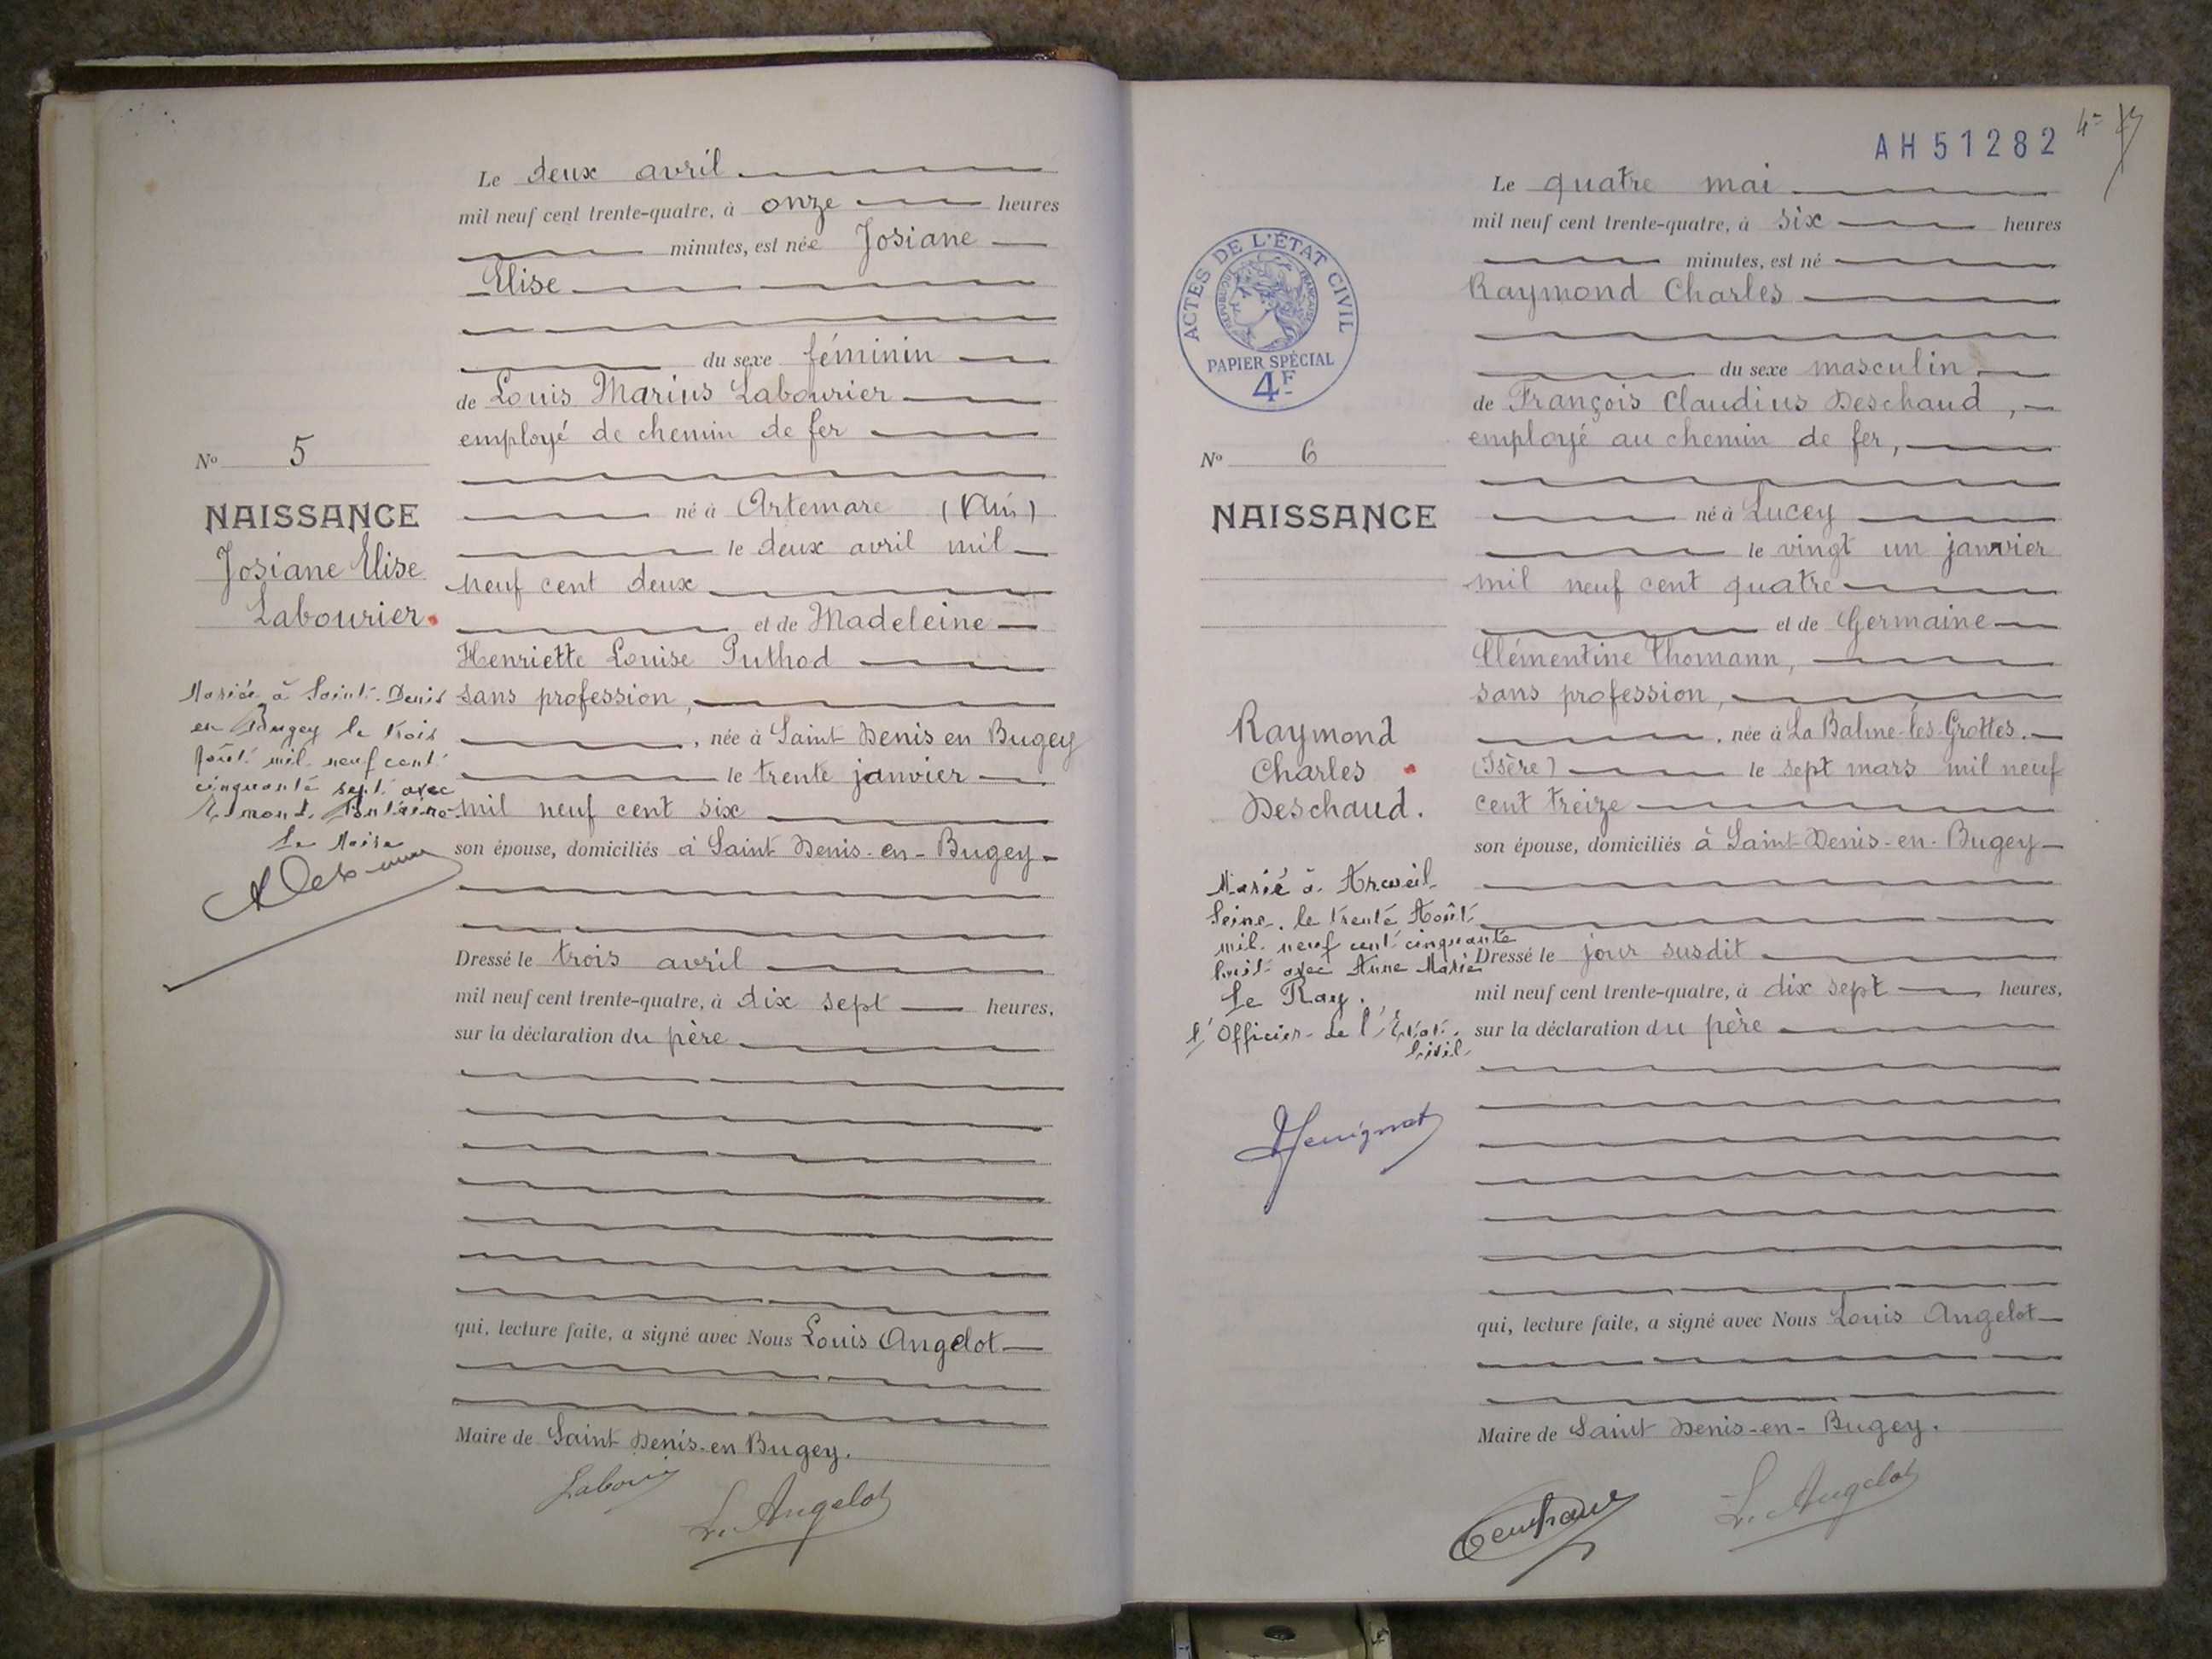 Le deux avril
mil neuf cent trente-quatre, à onze heures
minutes, est née Josiane
Elise
du sexe féminin
de Louis Marius Labourier
employé de chemin de fer
né à Artemare (Ain)
le deux avril mil
neuf cent deux
et de Madeleine
Henriette Louise Puthod
sans profession,
, née à Saint Denis en Bugey
le trente janvier
mil neuf cent six
son épouse, domiciliés à Saint Denis-en-Bugey
Dressé le trois avril
mil neuf cent trente-quatre, à dix sept heures,
sur la déclaration du père
qui, lecture faite, a signé avec Nous Louis Angelot
Maire de Saint Denis-en Bugey.
L. Angelot
No 5
NAISSANCE
Josiane Elise
Labourier
Mariée à Saint-Denis
en Bugey le trois
Août mil neuf cent
cinquante sept avec
Le Maire
AH51282
ACTES DE L'ÉTAT CIVIL
RÉPUBLIQUE FRANÇAISE
PAPIER SPÉCIAL
4F
No 6
NAISSANCE
Raymond
Charles
Deschaud.
Marié à Arcueil
Seine, le trente Août
mil neuf cent cinquante
huit avec Anne Marie
Le Ray.
L'Officier de l'Etat
Civil
Le quatre mai
mil neuf cent trente-quatre, à six heures
minutes, est né
Raymond Charles
du sexe masculin
de François Claudius Deschaud,
employé au chemin de fer,
né à Lucey
le vingt un janvier
mil neuf cent quatre
et de Germaine
Clémentine Thomann,
sans profession,
, née à La Balme-les-Grottes.
(Isère) le sept mars mil neuf
cent treize
son épouse, domiciliés à Saint-Denis-en-Bugey
Dressé le jour susdit
mil neuf cent trente-quatre, à dix sept heures,
sur la déclaration du père
qui, lecture faite, a signé avec Nous Louis Angelot
Maire de Saint Denis-en-Bugey.
L. Angelot